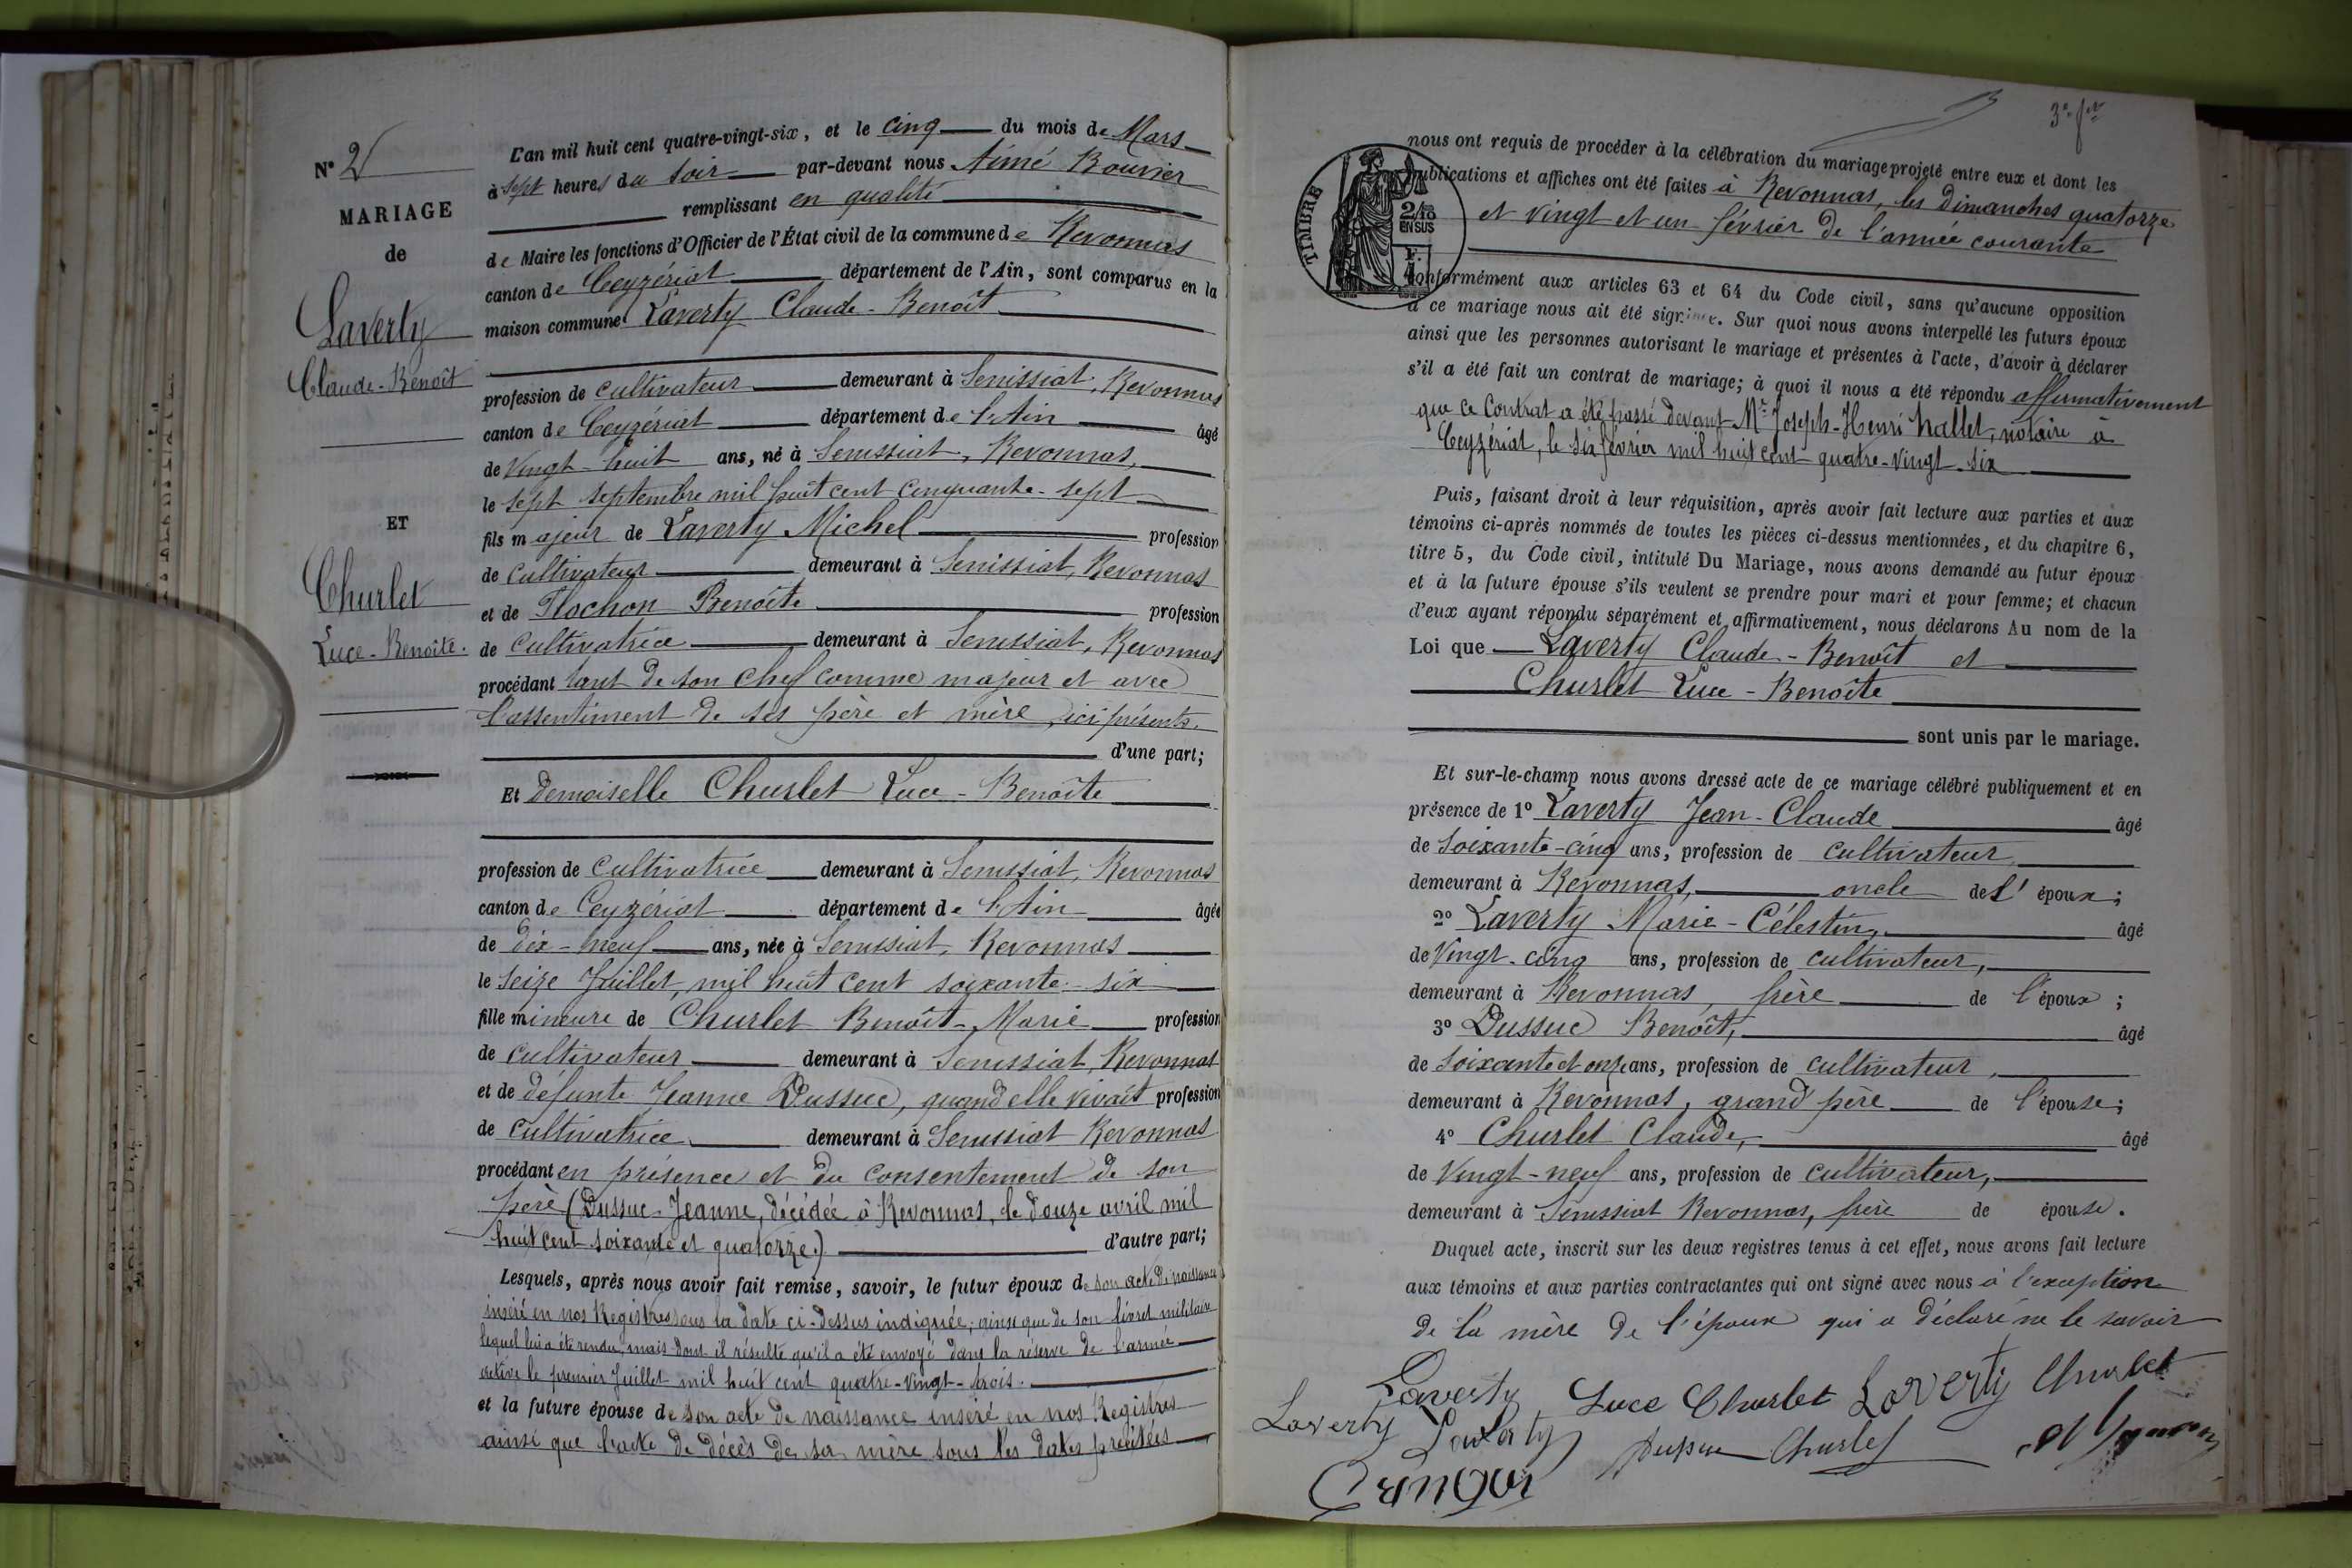 N° 2
MARIAGE
de
Laverty
Claude-Benoît
ET
Churlet
Luce-Benoîte.
L'an mil huit cent quatre-vingt-six, et le cinq du mois de Mars
à sept heures du soir par-devant nous Aimé Bouvier
remplissant en qualité
de Maire les fonctions d'Officier de l'État civil de la commune de Revonnas
canton de Ceyzériat département de l'Ain, sont comparus en la
maison commune Laverty Claude-Benoît
profession de cultivateur demeurant à Senissiat, Revonnas
canton de Ceyzériat département de l'Ain âgé
de vingt-huit ans, né à Senissiat, Revonnas,
le sept septembre mil huit cent cinquante-sept
fils majeur de Laverty Michel profession
de cultivateur demeurant à Senissiat, Revonnas
et de Flochon Benoîte profession
de cultivatrice demeurant à Senissiat, Revonnas
procédant tant de son chef comme majeur et avec
l'assentiment de ses père et mère, ici présents.
d'une part;
Et demoiselle Churlet Luce-Benoîte
profession de cultivatrice demeurant à Senissiat, Revonnas
canton de Ceyzériat département de l'Ain âgée
de dix-neuf ans, née à Senissiat, Revonnas
le seize Juillet, mil huit cent soixante-six
fille mineure de Churlet Benoît-Marie profession
de cultivateur demeurant à Senissiat, Revonnas
et de défunte Jeanne Dussuc, quand elle vivait profession
de cultivatrice demeurant à Senissiat Revonnas
procédant en présence et du consentement de son
père (Dussuc Jeanne, décédée à Revonnas, le douze avril mil
huit cent soixante et quatorze.) d'autre part;
Lesquels, après nous avoir fait remise, savoir, le futur époux de son acte de naissance
inséré en nos Registres sous la date ci-dessus indiquée, ainsi que de son livret militaire
lequel lui a été rendu, mais dont il résulte qu'il a été envoyé dans la réserve de l'armée
active le premier Juillet mil huit cent quatre-vingt-trois.
et la future épouse de son acte de naissance inséré en nos Registres
ainsi que l'acte de décès de sa mère sous les dates précitées
3
TIMBRE
2/10
EN SUS
nous ont requis de procéder à la célébration du mariage projeté entre eux et dont les
publications et affiches ont été faites à Revonnas, les dimanches quatorze
et vingt et un février de l'année courante
conformément aux articles 63 et 64 du Code civil, sans qu'aucune opposition
à ce mariage nous ait été signifiée. Sur quoi nous avons interpellé les futurs époux
ainsi que les personnes autorisant le mariage et présentes à l'acte, d'avoir à déclarer
s'il a été fait un contrat de mariage; à quoi il nous a été répondu affirmativement
que ce contrat a été passé devant Me Joseph-Henri Mallet, notaire à
Ceyzériat, le six février mil huit cent quatre-vingt-six
Puis, faisant droit à leur réquisition, après avoir fait lecture aux parties et aux
témoins ci-après nommés de toutes les pièces ci-dessus mentionnées, et du chapitre 6,
titre 5, du Code civil, intitulé Du Mariage, nous avons demandé au futur époux
et à la future épouse s'ils veulent se prendre pour mari et pour femme; et chacun
d'eux ayant répondu séparément et affirmativement, nous déclarons Au nom de la
Loi que Laverty Claude-Benoît et
Churlet Luce-Benoîte
sont unis par le mariage.
Et sur-le-champ nous avons dressé acte de ce mariage célébré publiquement et en
présence de 1° Laverty Jean-Claude âgé
de soixante-cinq ans, profession de cultivateur
demeurant à Revonnas, oncle de l'époux;
2° Laverty Marie-Célestin, âgé
de vingt-cinq ans, profession de cultivateur,
demeurant à Revonnas, frère de l'époux;
3° Dussuc Benoît, âgé
de soixante et onze ans, profession de cultivateur,
demeurant à Revonnas, grand père de l'épouse;
4° Churlet Claude, âgé
de vingt-neuf ans, profession de cultivateur,
demeurant à Senissiat Revonnas, frère de épouse.
Duquel acte, inscrit sur les deux registres tenus à cet effet, nous avons fait lecture
aux témoins et aux parties contractantes qui ont signé avec nous à l'exception
de la mère de l'époux qui a déclaré ne le savoir
Laverty Luce Churlet Laverty Churlet
Laverty Laverty Dussuc Churlet